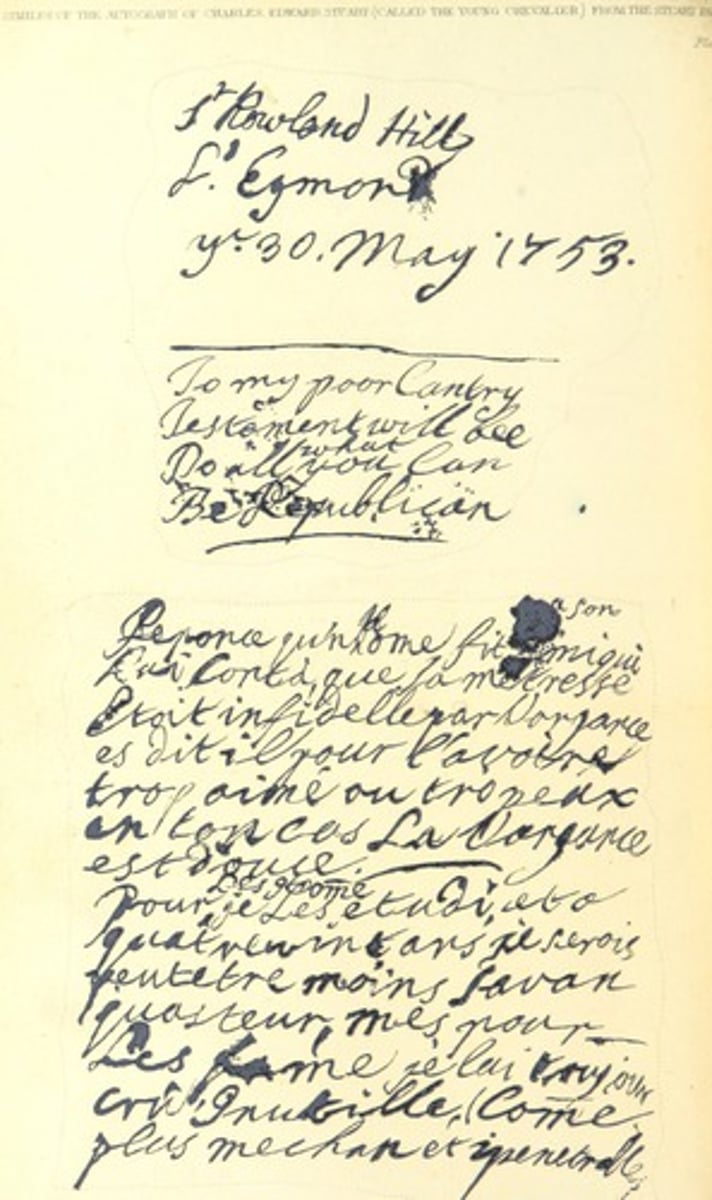 SIMILES OF THE AUTOGRAPH OF CHARLES EDWARD STUART (CALLED THE YOUNG CHEVALIER) FROM THE STUART PA
Pla
Sr Rowland Hill
Ld. Egmont
ye. 30. May 1753.
To my poor Cantry
Testement will See
Do all what you Can
Be Republican
Reponce qu'n home fit a son ami qui
lui Conta, que sa metresse
Etoit infidelle par Vorgance
es dit il pour l'avoire
trop aimé ou tro peux
en ton cas La Vorgance
est douce.
Pour Les home je Les etudi, et a
quatrevint ans je serois
peutetre moins Savan
quosteur, mes pour
Les fame je lai toujour
cru Inutille, Come
plus mechan et ipenetrable